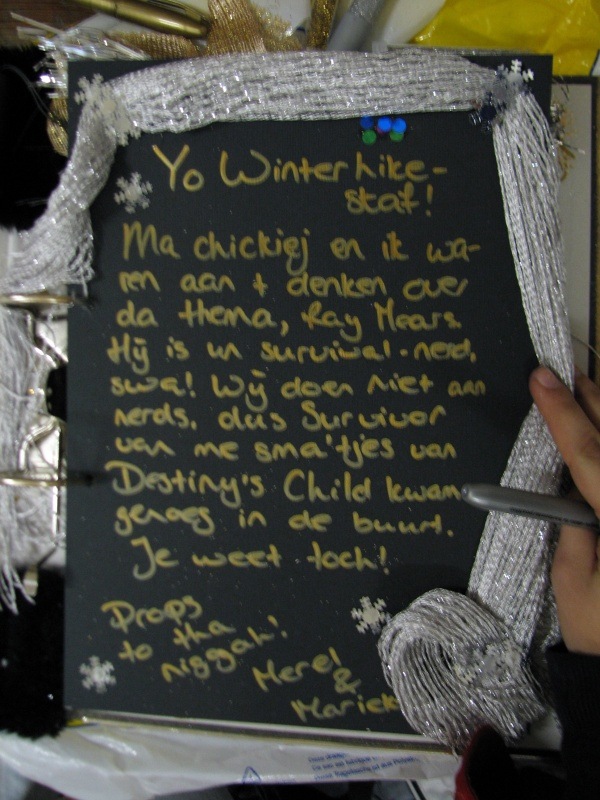 Yo Winterhike-
staf!
Ma chickiej en ik wa-
ren aan t denken over
da thema, Ray Mears.
Hij is un survival-nerd,
swa! Wij doen niet aan
nerds, dus Survivor
van me sma'tjes van
Destiny's Child kwam
genoeg in de buurt.
Je weet toch!
Props
to tha
niggah!
Merel
&
Mariek